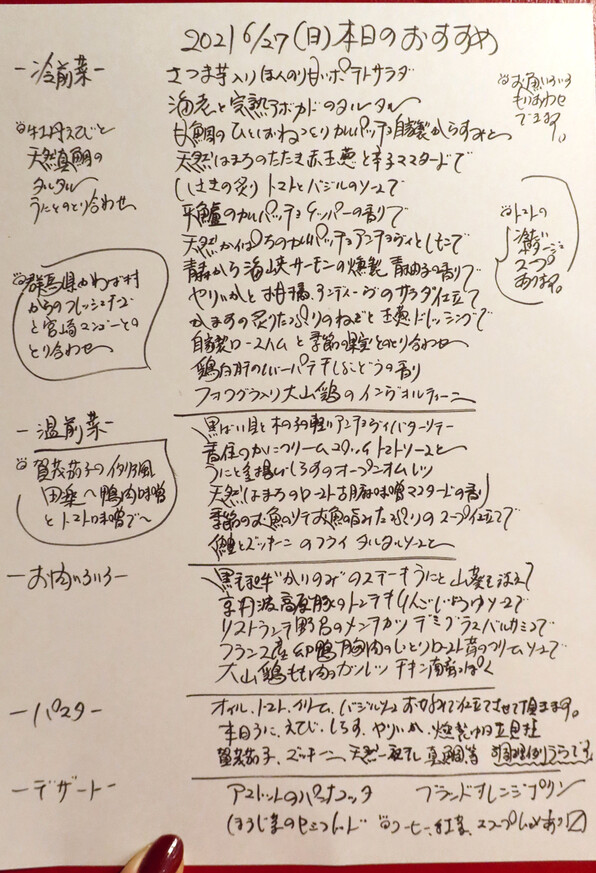 2021 6/27(日)本日のおすすめ
-冷前菜-
さつま芋入りほんのり甘いポテトサラダ
海老と完熟アボカドのタルタル
甘鯛のひとしおねっとりカルパッチョ自家製からすみと
天然はまちのたたき赤玉葱と辛子マスタードで
しめさばの炙り トマトとバジルのソースで
平鱸のカルパッチョ ケッパーの香りで
天然かんぱちのカルパッチョ アンチョヴィとレモンで
青森から海峡サーモンの燻製 青柚子の香りで
やりいかとお柑橘、アンディーヴのサラダ仕立て
かますの炙りたっぷりのねぎと玉葱ドレッシングで
自家製ロースハムと季節の果実とのとり合わせ
鶏白肝のレバーパテ 干しぶどうの香り
フォワグラ入り大山鶏のインヴォルティーニ
牡丹えびと
天然真鯛の
タルタル
うにとのとり合わせ
群馬県かわば村
からのフレッシュチーズ
と宮崎マンゴーとの
とり合わせ
お魚いろいろ
もりあわせ
できます。
トマトの
冷たい
ポタージュ
スープ
あります。
-温前菜-
黒ばい貝と木の子の軽いアンチョヴィバターソテー
香住のかにクリームコロッケ トマトソースと
うにと釜揚げしらすのオープンオムレツ
天然はまちのロースト胡麻味噌マスタードの香り
季節のお魚のソテお魚の旨みたっぷりのスープ仕立てで
鱧とズッキーニのフライ タルタルソースと
賀茂茄子のイタリア風
田楽へ鴨肉味噌
とトマト味噌で〜
-お肉いろいろ-
黒毛和牛"かいのみ"のステーキうにと山葵を添えて
京丹波高原豚のトンテキりんごじょうゆソースで
リストランテ野呂のメンチカツ デミグラスバルサミコで
フランス産 仔鴨胸肉のしっとりロースト 茸のクリームソースで
大山鶏もも肉のカツレツ チキン南蛮っぽく
-パスタ-
オイル、トマト、クリーム、バジルソース お好みで仕立てさせて頂きます。
本日うに、えび、しらす、やりいか、燻製ゆり
賀茂茄子、ズッキーニ、天然一夜干し 真鯛等
-デザート-
ブラッドオレンジプリン
ほうじ茶のセミフレッド
コーヒー、紅茶、エスプレッソあり